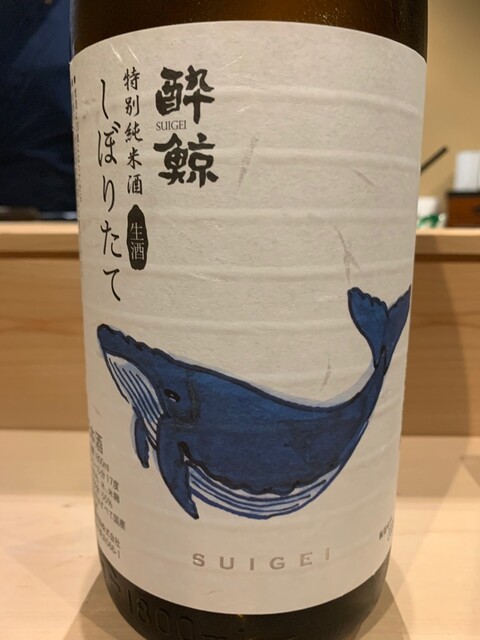 酔鯨
SUIGEI
特別純米酒
しぼりたて
生酒
SUIGEI
1800